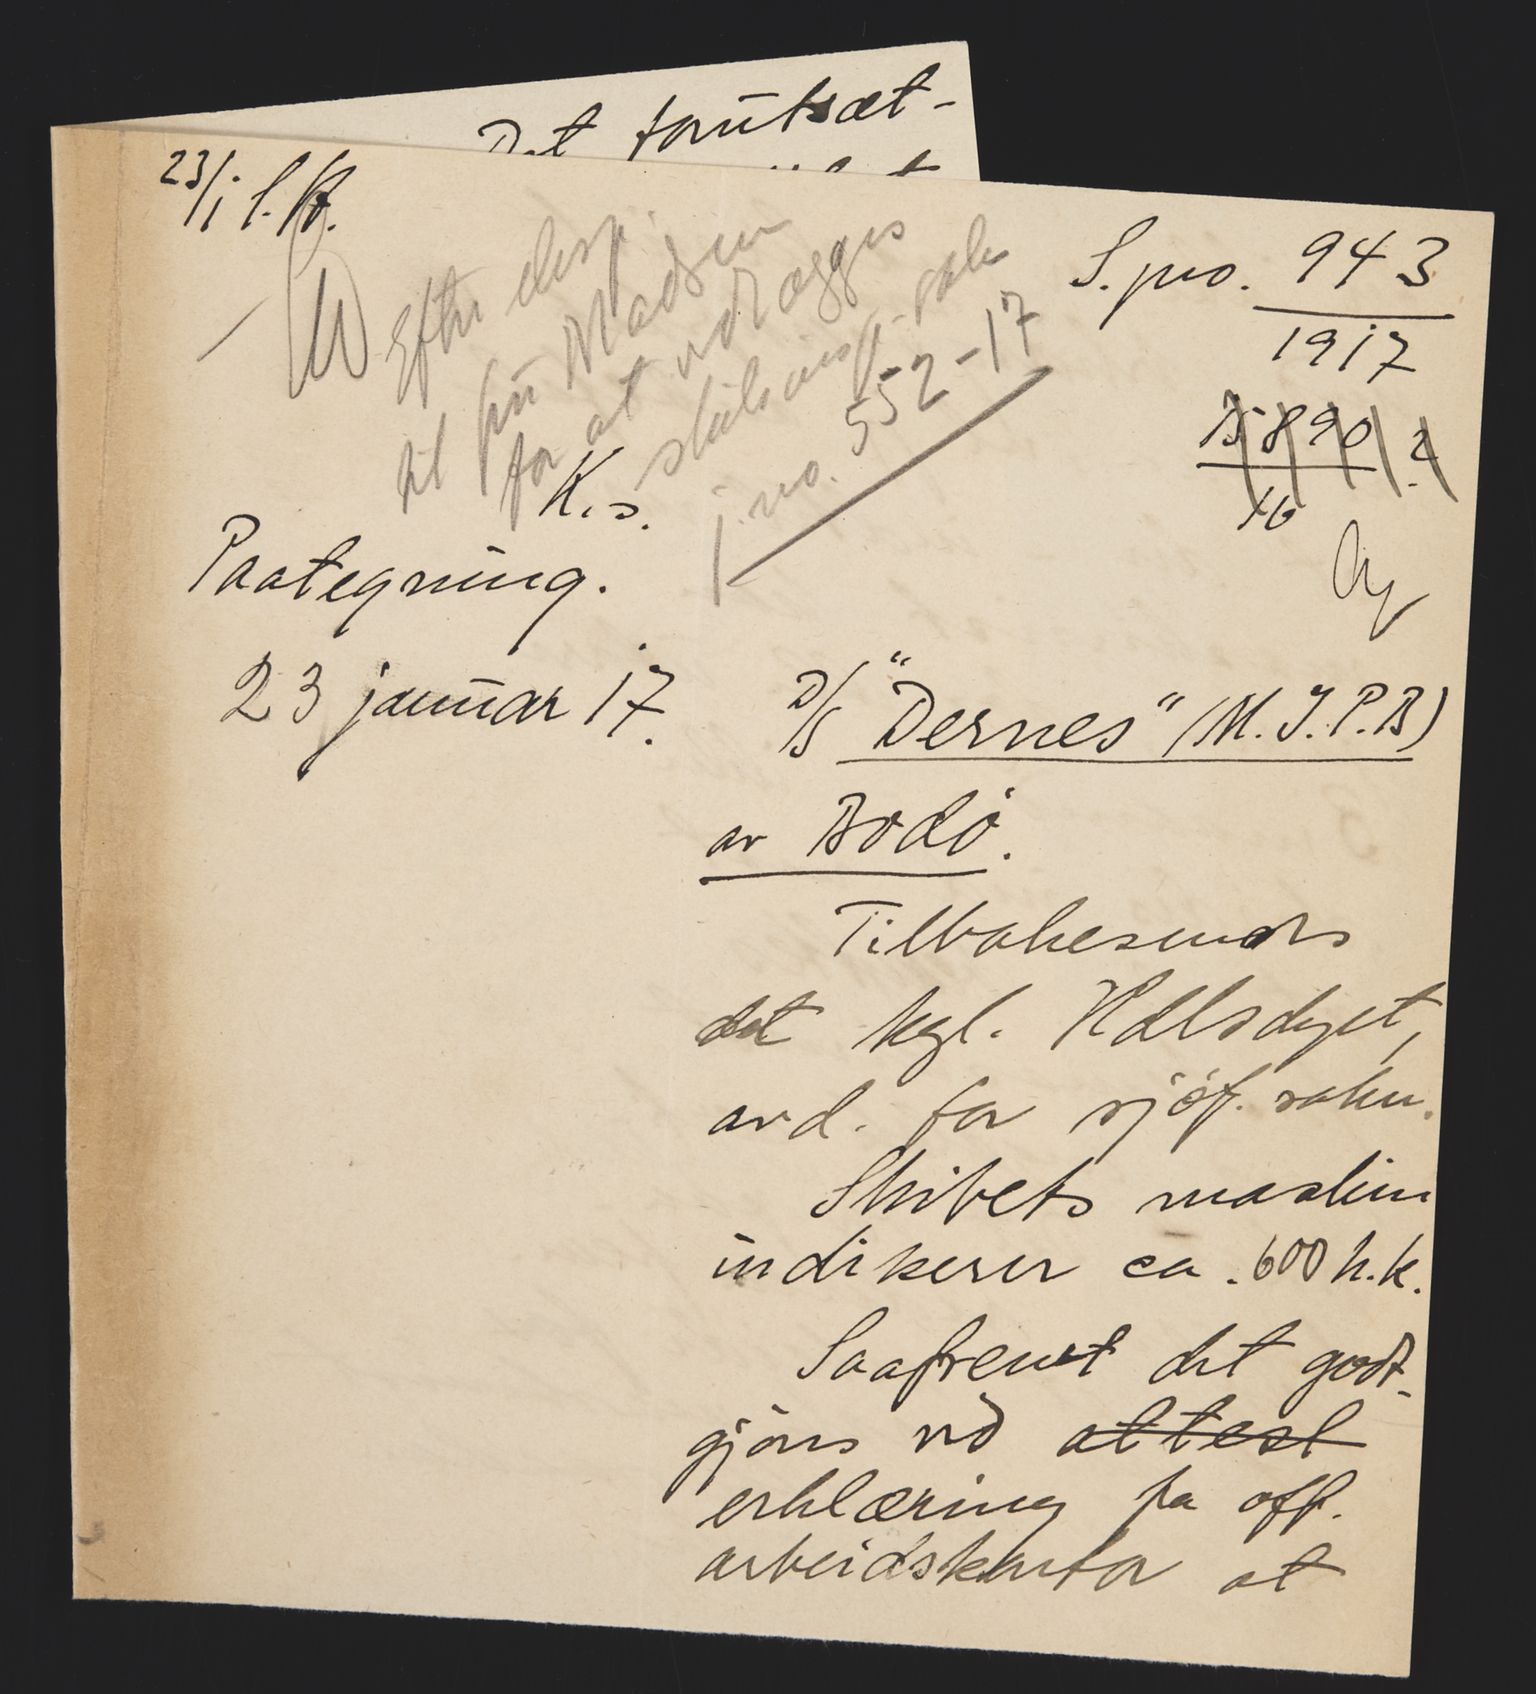 Det forutsæt-
23/1 S.K.
Efter eksp.
til frn Madsen
for at vedlægges
skibsinsp. sak
j. no. 552-17
S.jno. 943
1917
15890.2
16
K.s.
Paategning.
23 januar 17.
D/S "Dernes" (M.J.P.B)
av Bodö.
Tilbakesendes
det kgl. Hdlsdept,
avd. for sjöf. saker.
Skibets maskin
indikerer ca. 600 h.k.
Saafremt det godt-
gjöres ved attest
erklæring fra off.
arbeidskontor at